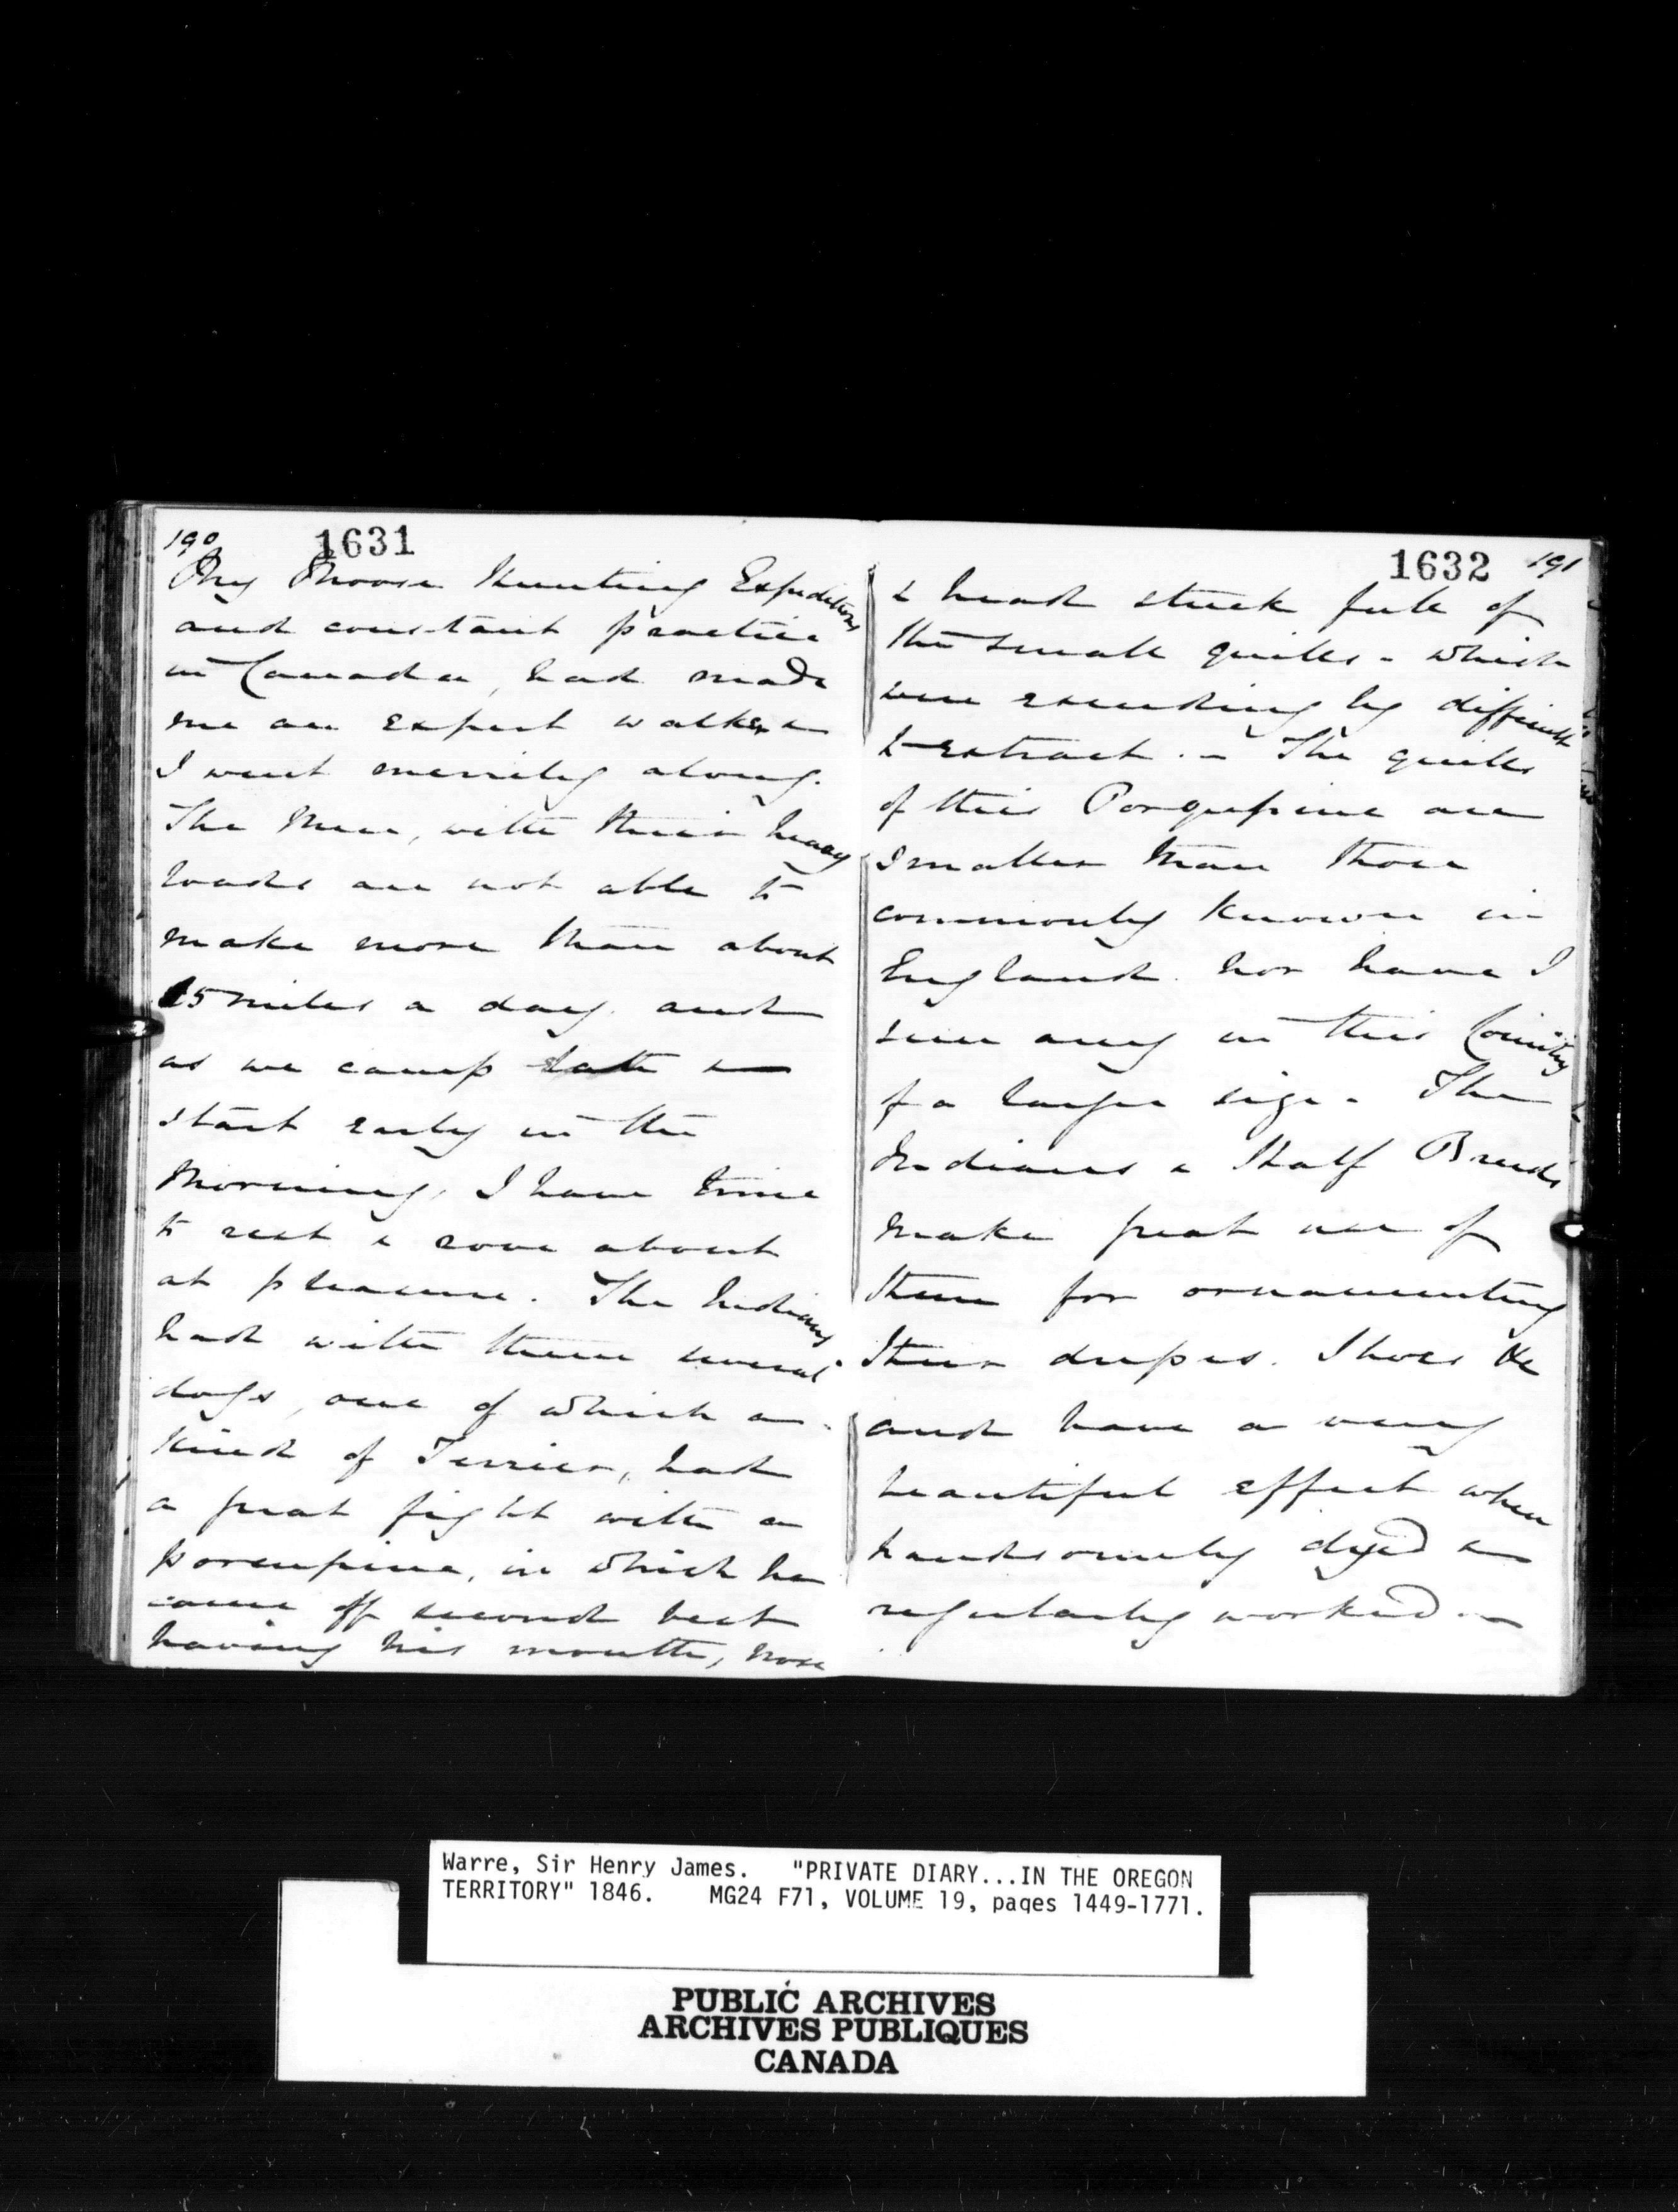 190 1631
My Moose Hunting Expeditions
and constant practice
in Canada, had made
me an expert walker &
I went merrily along.
The Men, with their heavy
loads are not able to
make more than about
15 miles a day and
as we camp late &
start early in the
Morning, I have time
to rest & rove about
at pleasure. The Indians
had with them several
dogs, one of which a
kind of Terrier, had
a great fight with a
porcupine, in which he
came off second best
having his mouth, nose
1632 191
& head stuck full of
the small quills - which
were exceedingly difficult
to extract. - The quills
of this Porqupine are
smaller than those
commonly known in
England. nor have I
seen any in this Country
of a larger size. The
Indians & Half Breeds
make great use of
them for ornamenting
their dresses. Shoes &c
and have a very
beautiful effect when
handsomely dyed &
regularly worked -
Warre, Sir Henry James. "PRIVATE DIARY...IN THE OREGON
TERRITORY" 1846. MG24 F71, VOLUME 19, pages 1449-1771.
PUBLIC ARCHIVES
ARCHIVES PUBLIQUES
CANADA